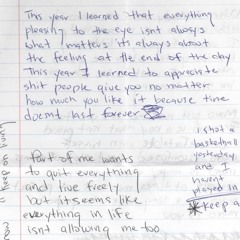 This year I learned that everything
pleasing to the eye isnt always
what matters it's always about
the feeling at the end of the day
This year I learned to appreciate
shit people give you no matter
how much you like it because time
doesnt last forever
Part of me wants
to quit everything
and live freely
but it seems like
everything in life
isnt allowing me too
i shot a
basketball
yesterday
and I
havent
played in
*keep a